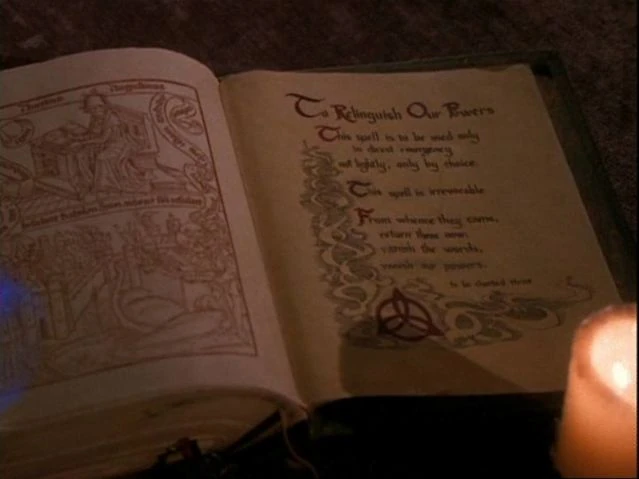 To Relinguish Our Powers
This spell is to be used only
in direst emergency
not lightly, only by choice.
This spell is irrevocable
From whence they came,
return them now:
vanish the words,
vanish our powers.
to be chanted thrice